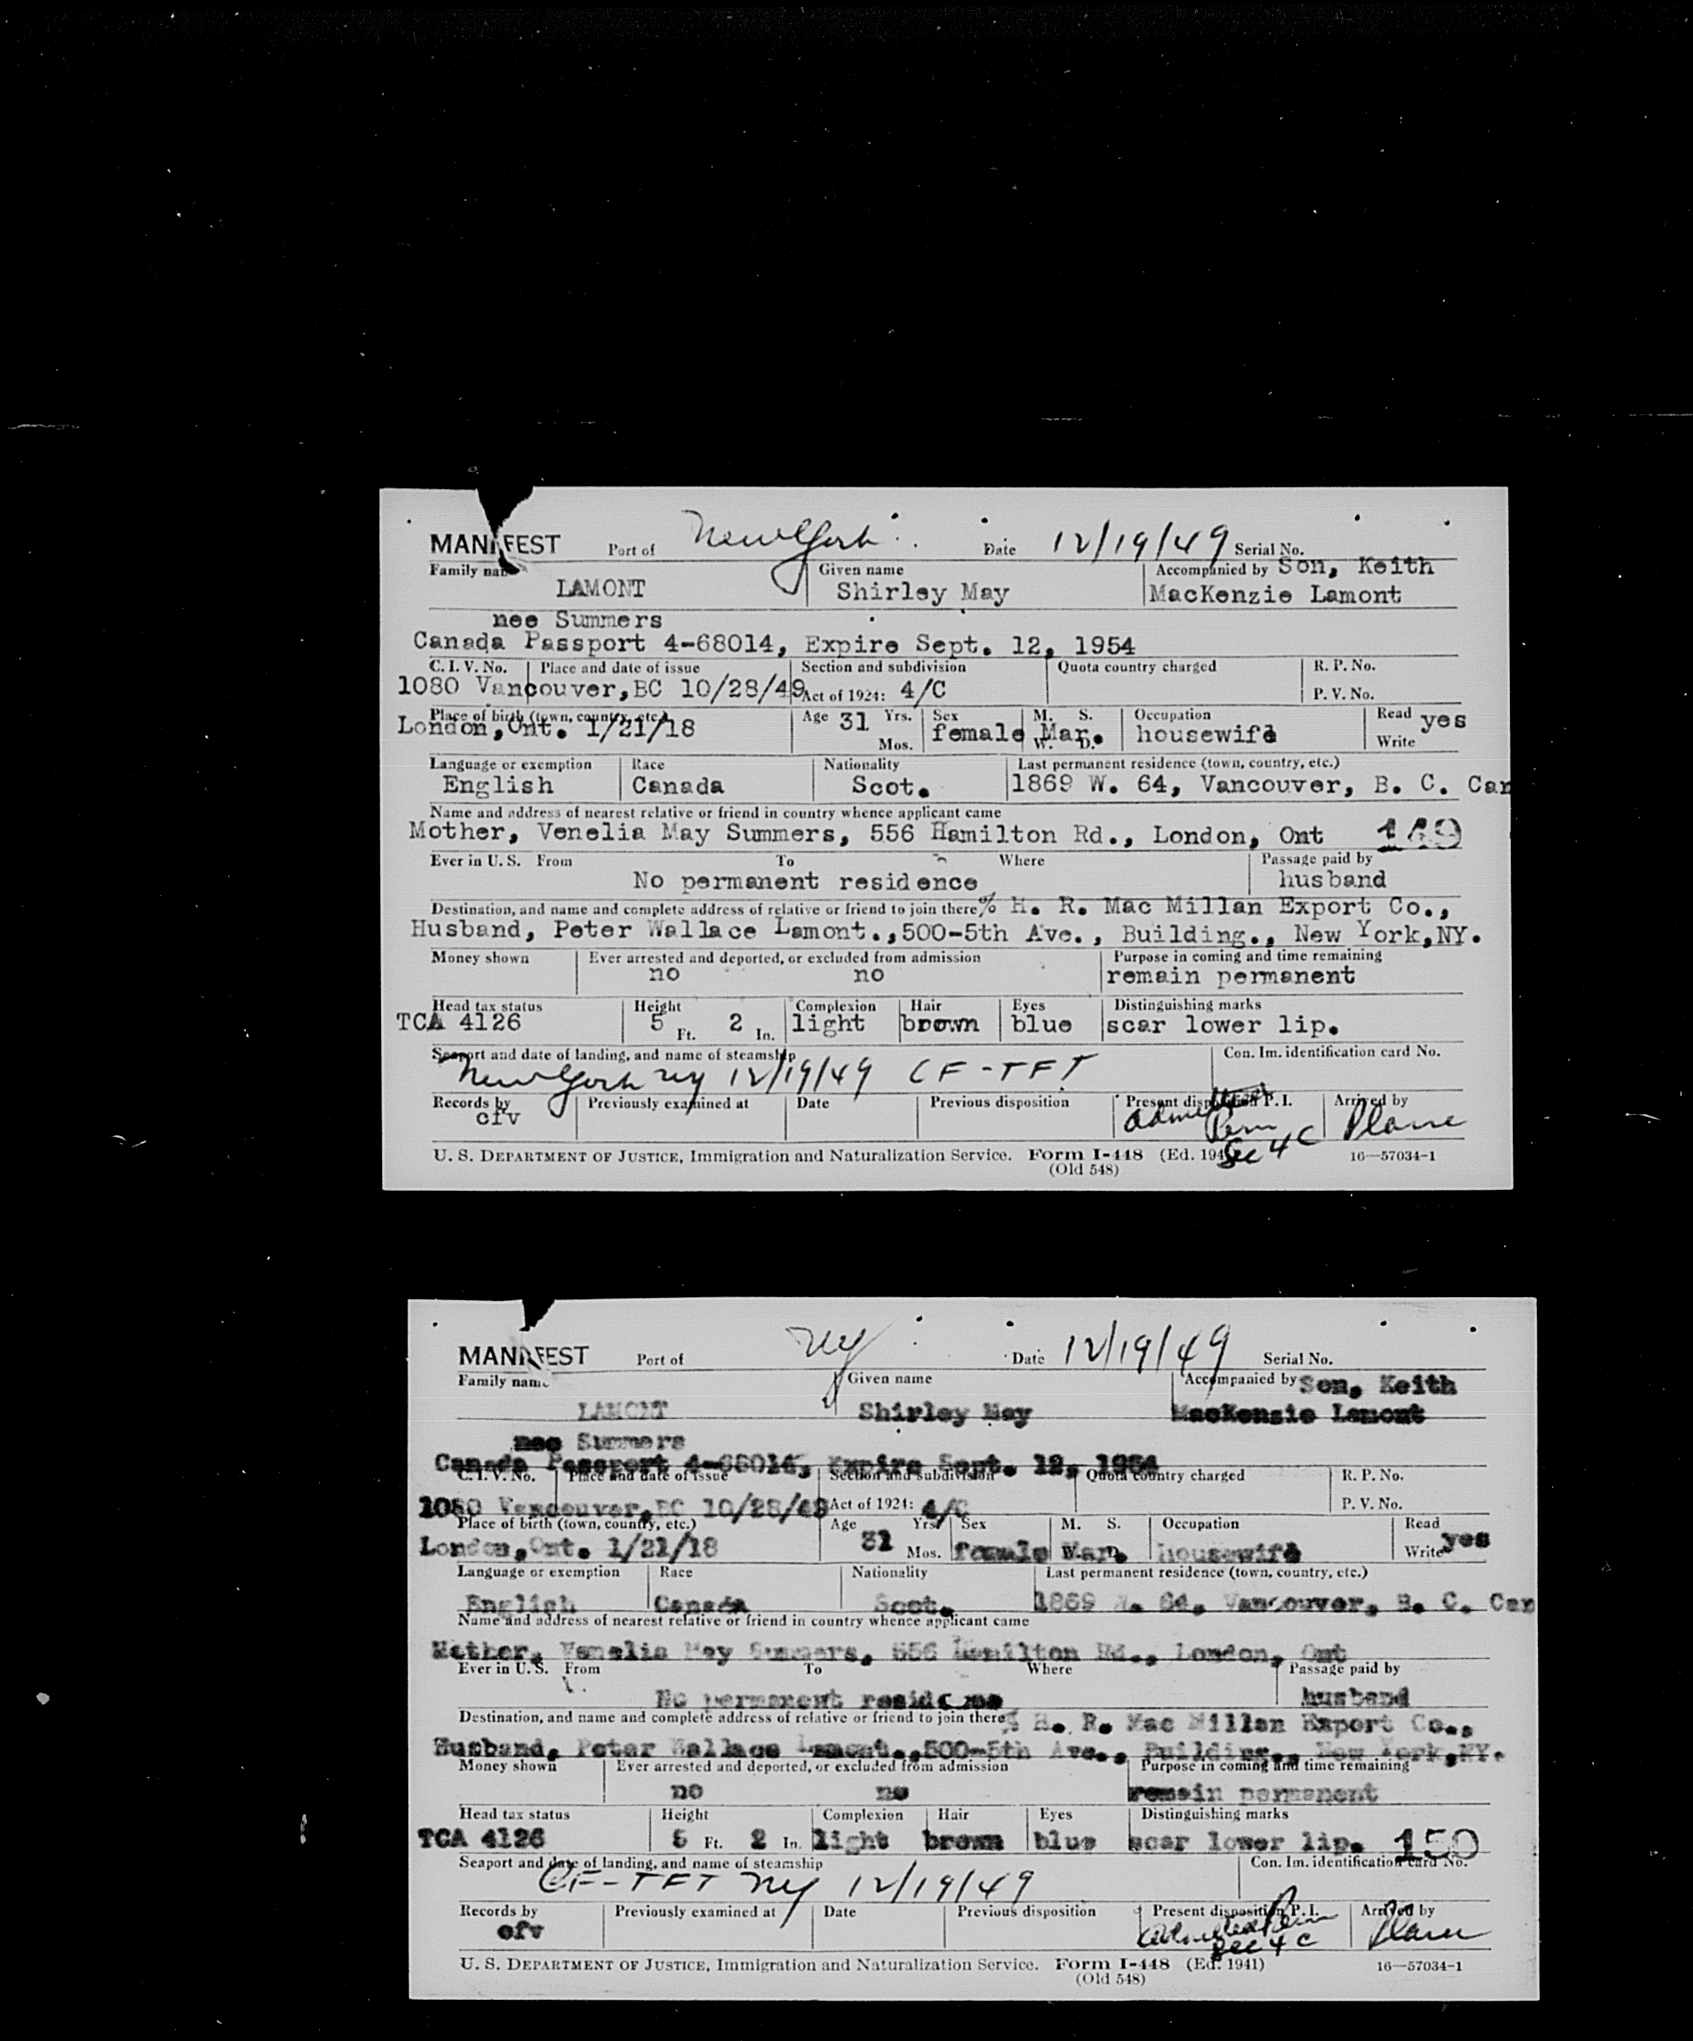 MANIFEST Port of New York Date 12/19/49 Serial No.
Family name Given name Accompanied by Son, Keith
LAMONT Shirley May MacKenzie Lamont
nee Summers
Canada Passport 4-68014, Expire Sept. 12, 1954
C. I. V. No. Place and date of issue Section and subdivision Quota country charged R. P. No.
1080 Vancouver,BC 10/28/49 Act of 1924: 4/C P. V. No.
Place of birth (town, country, etc.) Age 31 Yrs. Sex M. S. Occupation Read yes
London,Ont. 1/21/18 Mos. female Mar. W. D. housewife Write
Language or exemption Race Nationality Last permanent residence (town, country, etc.)
English Canada Scot. 1869 W. 64, Vancouver, B. C. Can
Name and address of nearest relative or friend in country whence applicant came
Mother, Venelia May Summers, 556 Hamilton Rd., London, Ont 149
Ever in U. S. From To Where Passage paid by
No permanent residence husband
Destination, and name and complete address of relative or friend to join there % H. R. Mac Millan Export Co.,
Husband, Peter Wallace Lamont.,500-5th Ave., Building., New York,NY.
Money shown Ever arrested and deported, or excluded from admission Purpose in coming and time remaining
no no remain permanent
Head tax status Height Complexion Hair Eyes Distinguishing marks
TCA 4126 5 Ft. 2 In. light brown blue scar lower lip.
Seaport and date of landing, and name of steamship Con. Im. identification card No.
New York NY 12/19/49 CF-TFT
Records by Previously examined at Date Previous disposition Present disposition P. I. Arrived by
cfv Admitted Perm Plane
Sec 4 C
U. S. DEPARTMENT OF JUSTICE, Immigration and Naturalization Service. Form I-448 (Ed. 1941) 16—57034-1
(Old 548)
MANIFEST Port of NY Date 12/19/49 Serial No.
Family name Given name Accompanied by Son, Keith
LAMONT Shirley May MacKenzie Lamont
nee Summers
Canada Passport 4-68014, Expire Sept. 12, 1954
C. I. V. No. Place and date of issue Section and subdivision Quota country charged R. P. No.
1080 Vancouver,BC 10/28/49 Act of 1924: 4/C P. V. No.
Place of birth (town, country, etc.) Age Yrs. Sex M. S. Occupation Read
London,Ont. 1/21/18 31 Mos. female Mar. W. D. housewife Write yes
Language or exemption Race Nationality Last permanent residence (town, country, etc.)
English Canada Scot. 1869 W. 64, Vancouver, B. C. Can
Name and address of nearest relative or friend in country whence applicant came
Mother, Venelia May Summers, 556 Hamilton Rd., London, Ont
Ever in U. S. From To Where Passage paid by
No permanent residence husband
Destination, and name and complete address of relative or friend to join there % H. R. Mac Millan Export Co.,
Husband, Peter Wallace Lamont.,500-5th Ave., Building., New York,NY.
Money shown Ever arrested and deported, or excluded from admission Purpose in coming and time remaining
no no remain permanent
Head tax status Height Complexion Hair Eyes Distinguishing marks
TCA 4126 5 Ft. 2 In. light brown blue scar lower lip. 150
Seaport and date of landing, and name of steamship Con. Im. identification card No.
CF-TFT NY 12/19/49
Records by Previously examined at Date Previous disposition Present disposition P. I. Arrived by
cfv Admitted Perm Plane
Sec 4 C
U. S. DEPARTMENT OF JUSTICE, Immigration and Naturalization Service. Form I-448 (Ed. 1941) 16—57034-1
(Old 548)